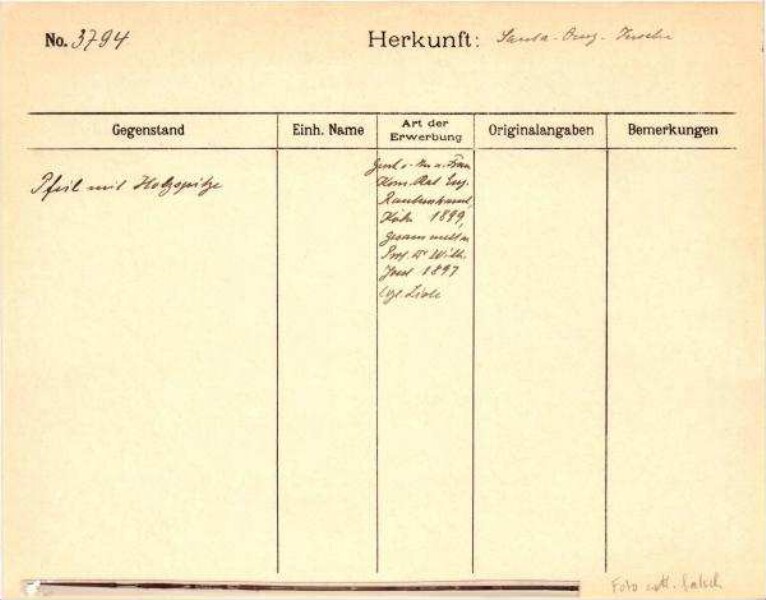 No. 3794
Herkunft: Santa-Cruz-Inseln
Gegenstand
Einh. Name
Art der Erwerbung
Originalangaben
Bemerkungen
Pfeil mit Holzspitze
Gesch. v. Frau
Kom. Rat Eug.
Rautenstrauch
Köln 1899,
gesammelt v.
Prof. Dr Wilh.
Joest 1897
Foto